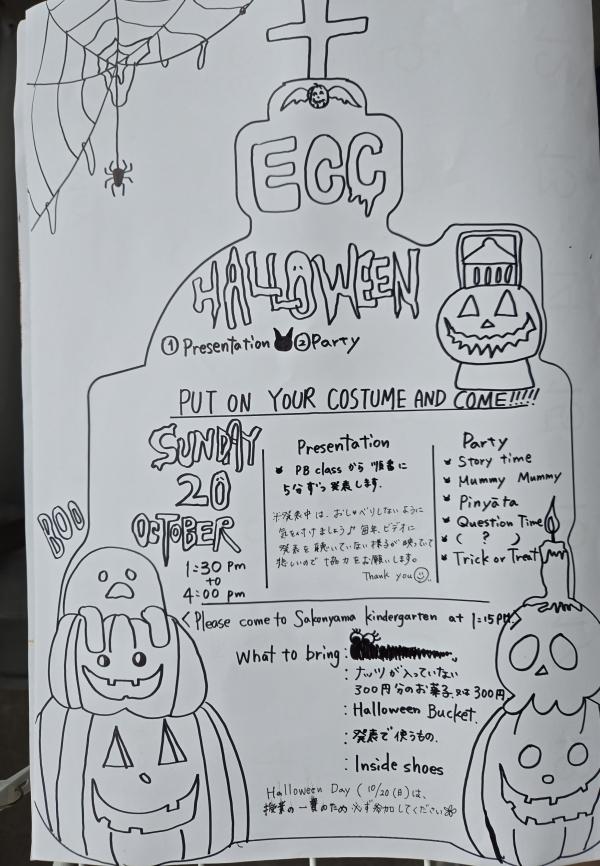 ECC
HALLOWEEN
① Presentation ② Party
PUT ON YOUR COSTUME AND COME!!!!!
SUNDAY
20
OCTOBER
1:30 pm
to
4:00 pm
BOO
Presentation
PB classから順番に
5分ずつ発表します。
※発表中は、おしゃべりしないように
気を付けましょう♪毎年、ビデオに
発表を聴いていない様子が映っていて
悲しいのでご協力をお願いします。
Thank you☺.
Party
Story time
Mummy Mummy
Pinyāta
Question Time
( ? )
Trick or Treat
<Please come to Sakonyama kindergarten at 1:15PM.>
What to bring:
: ナッツが入っていない
300円分のお菓子.又は300円.
: Halloween Bucket.
: 発表で使うもの.
: Inside shoes
Halloween Day ( 10/20 (日)は、
授業の一貫のため必ず参加してください